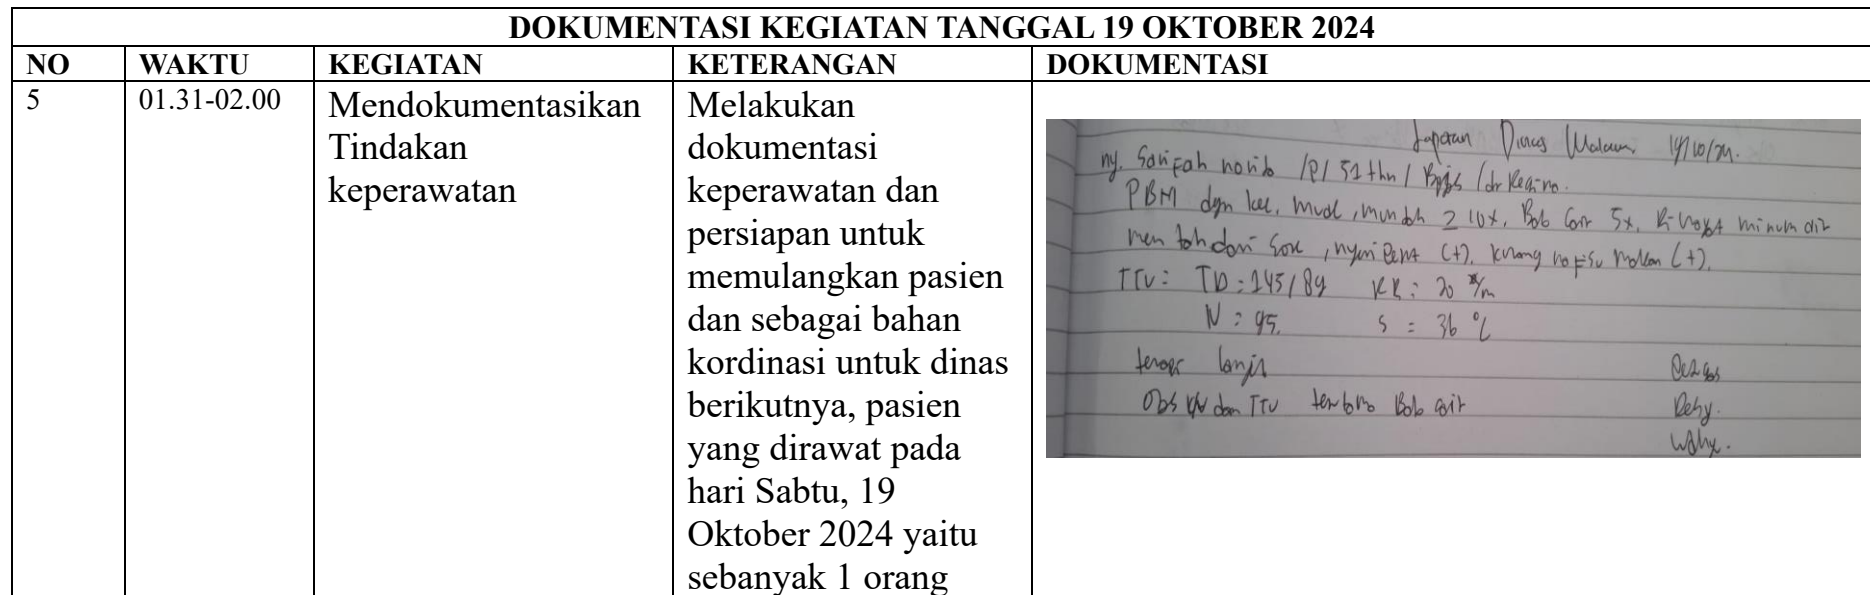 DOKUMENTASI KEGIATAN TANGGAL 19 OKTOBER 2024
NO WAKTU KEGIATAN KETERANGAN DOKUMENTASI
5 01.31-02.00
Mendokumentasikan
Tindakan
keperawatan
Melakukan
dokumentasi
keperawatan dan
persiapan untuk
memulangkan pasien
dan sebagai bahan
kordinasi untuk dinas
berikutnya, pasien
yang dirawat pada
hari Sabtu, 19
Oktober 2024 yaitu
sebanyak 1 orang
Laporan Dinas Malam
ny. /P/ 51 thn / Bpjs / dr
PBM dgn kel. mual, muntah ≥ 10x, Bab Cair 5x, minum air
mentah dari Sore, (+), kurang nafsu makan (+).
TTV: TD: 145/89 RR: 20 x/m
N: 95. S = 36 °C
terapi lanjut
Obs dan TTV Bab Cair